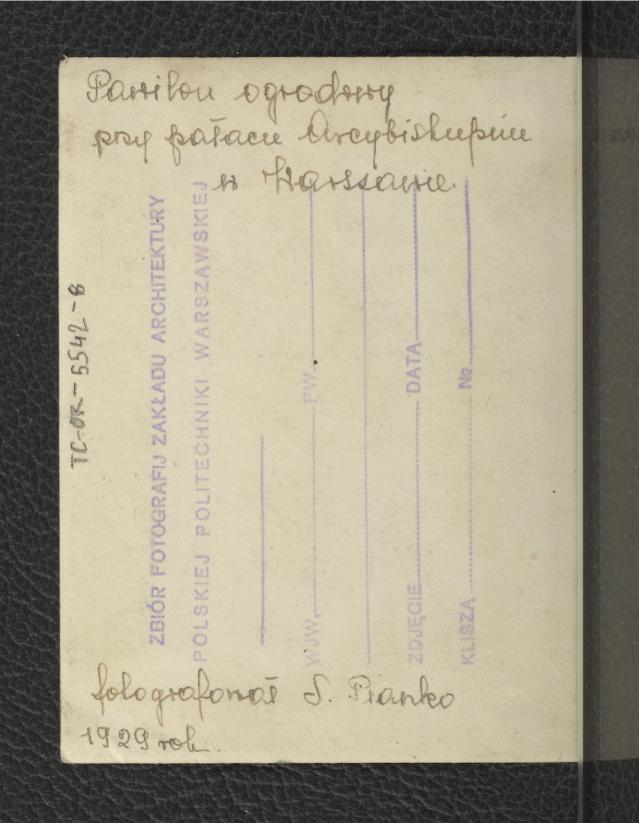 Pawilon ogrodowy
przy pałacu Arcybiskupim
w Warszawie.
ZBIÓR FOTOGRAFIJ ZAKŁADU ARCHITEKTURY
POLSKIEJ POLITECHNIKI WARSZAWSKIEJ
WJW. PW.
ZDJĘCIE DATA
KLISZA №
TC-OR-5542-B
fotografował S. Pianko
1929 rok.